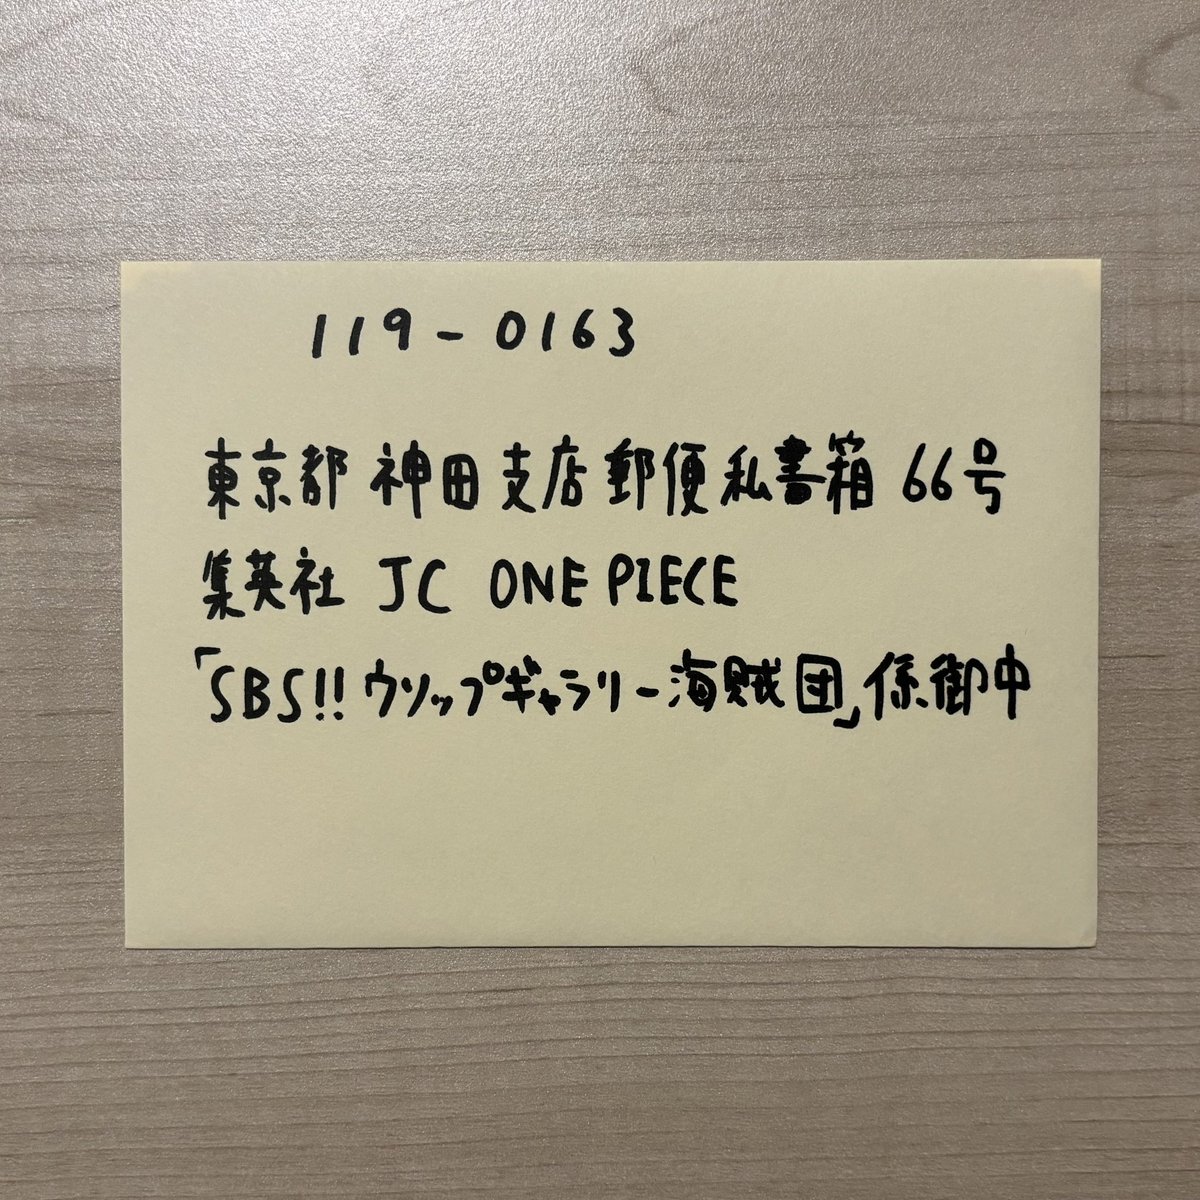 119-0163
東京都 神田支店郵便私書箱 66号
集英社 JC ONE PIECE
「SBS!! ウソップギャラリー海賊団」係御中